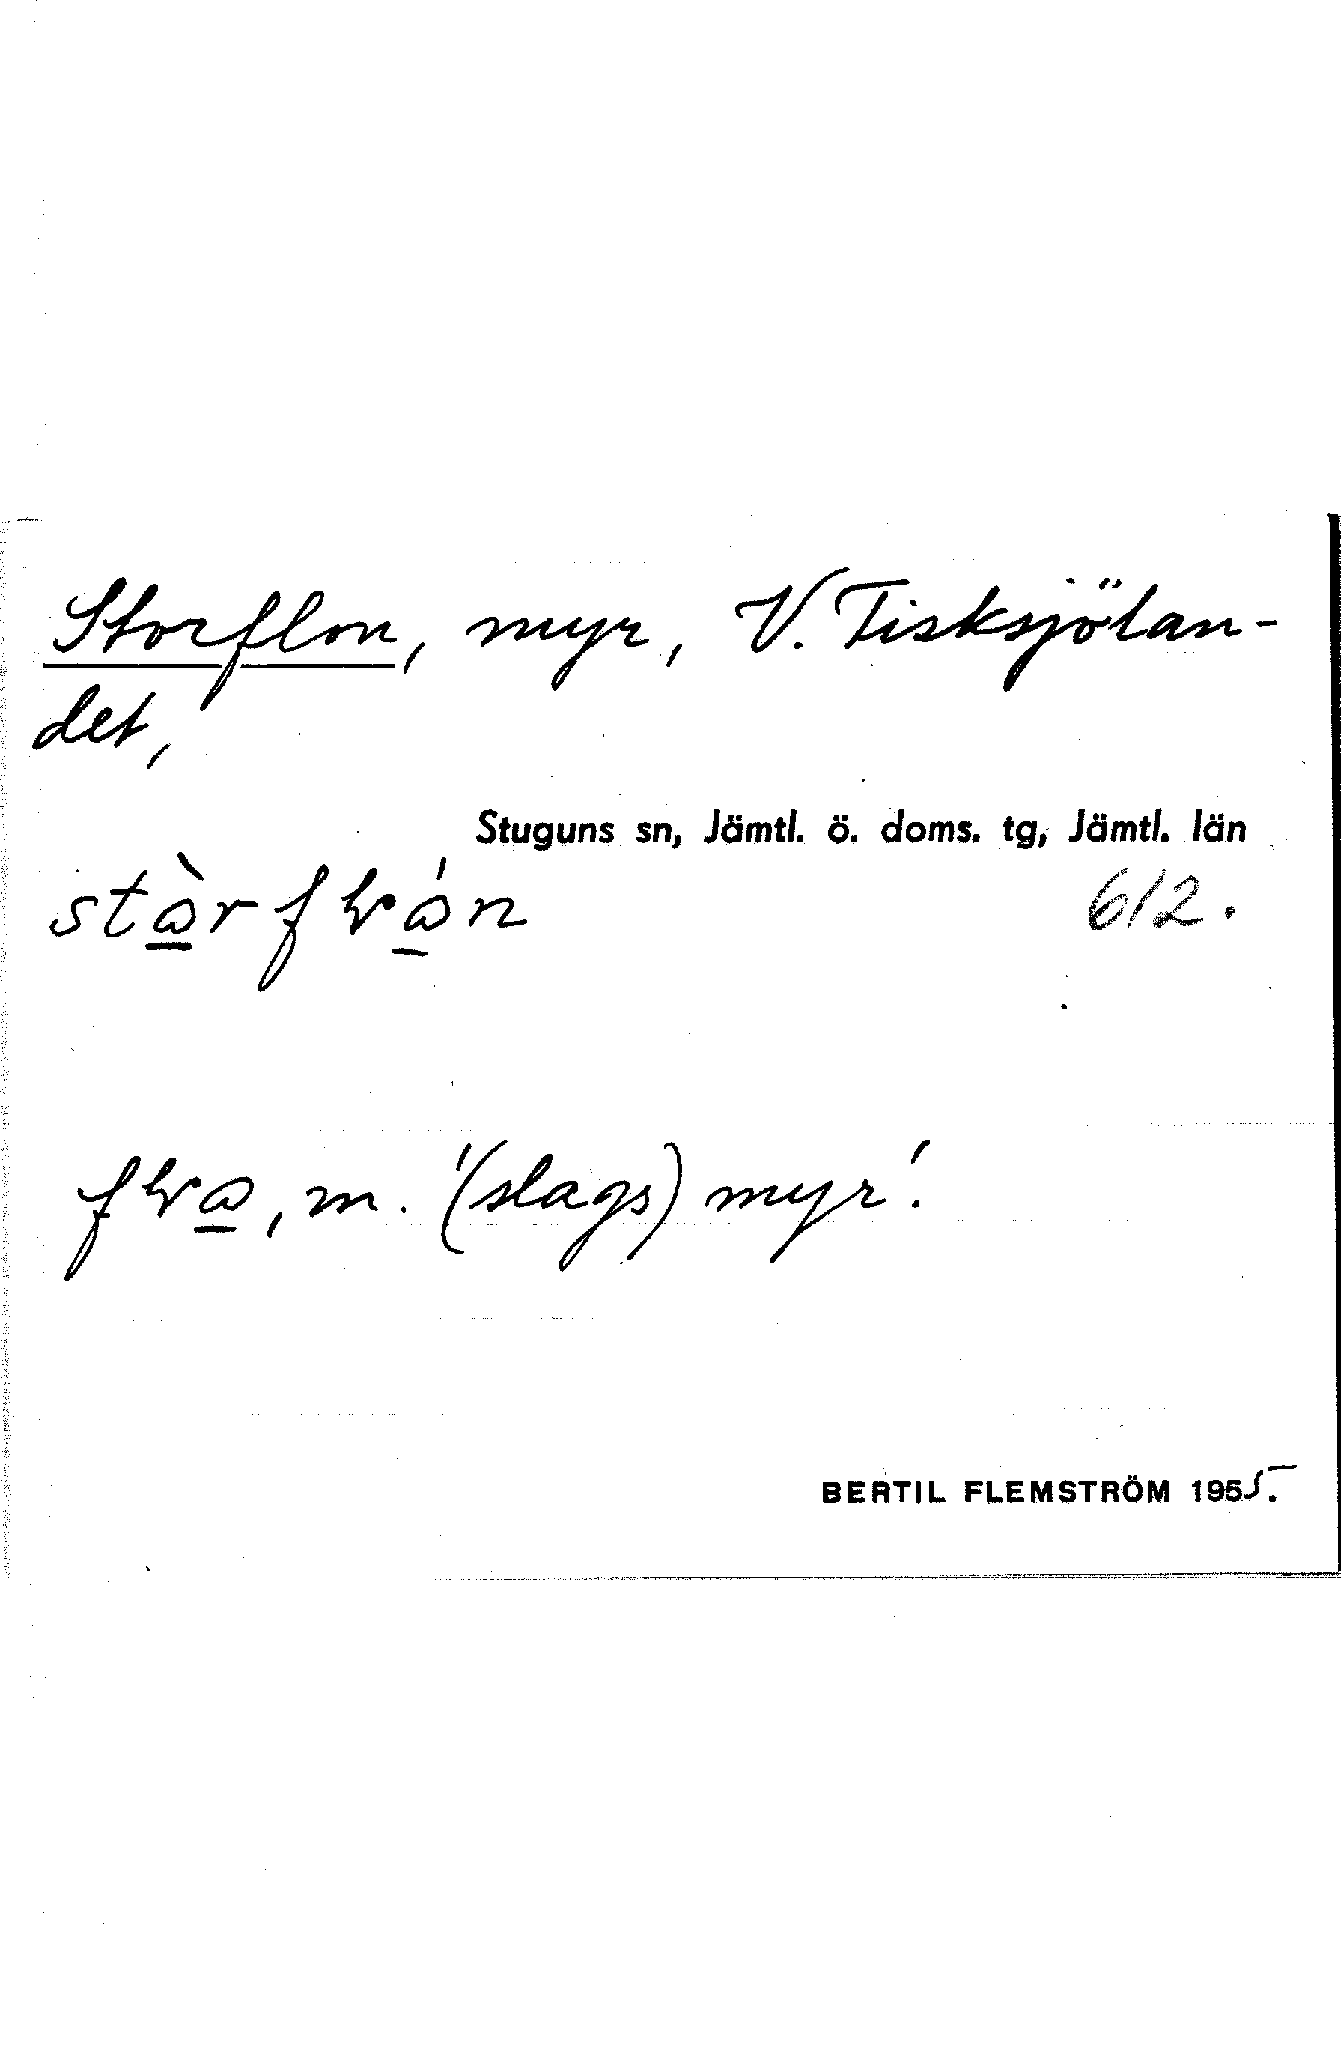 Storflon, myr, V. Tisksjölan-
det,
Stuguns sn, Jämtl. ö. doms. tg, Jämtl. län
612.
m. '(slags) myr'.
BERTIL FLEMSTRÖM 1955.